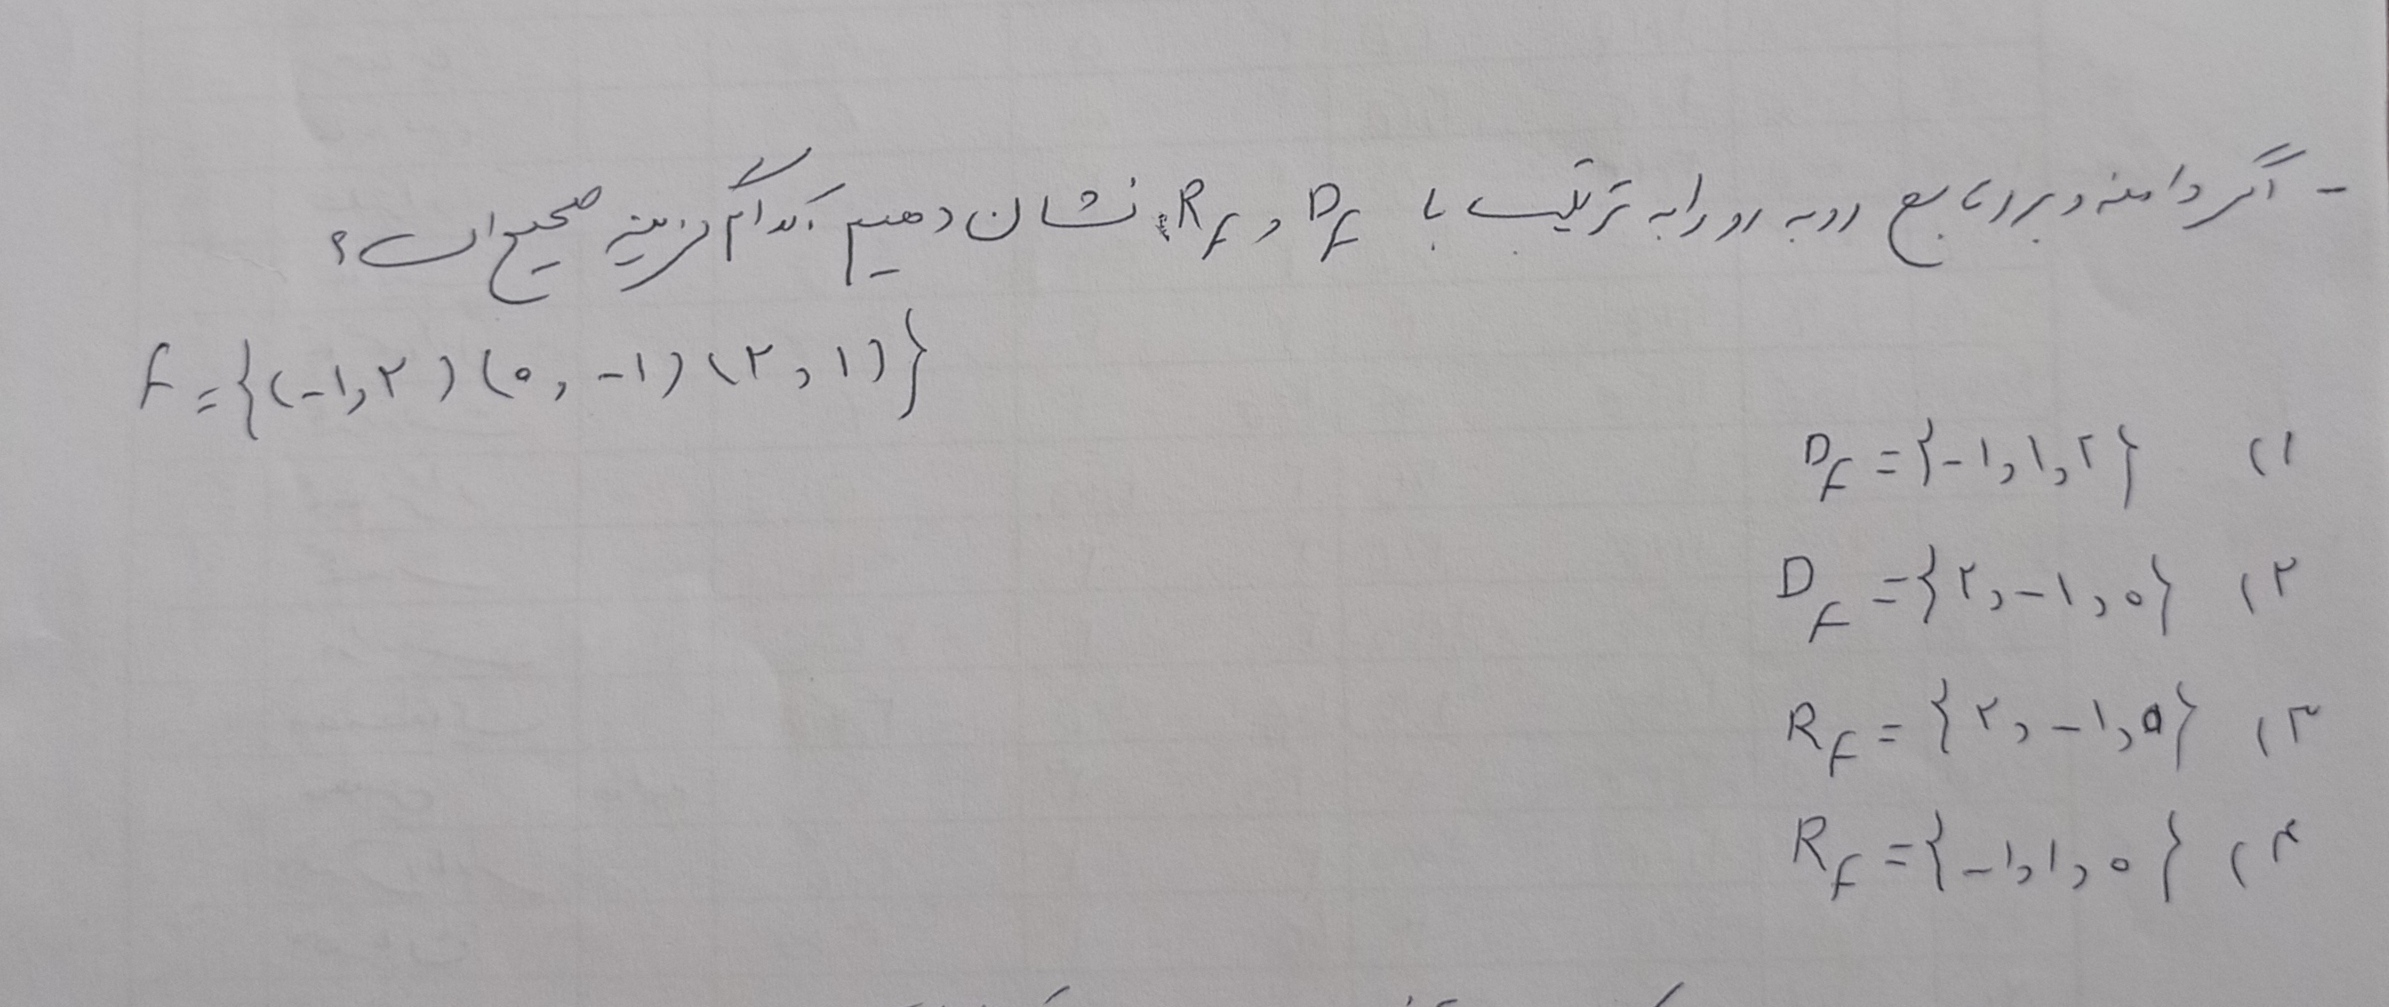 - اگر دامنه و برد تابع روبه رو را به ترتیب با D_f و R_f نشان دهیم، کدام گزینه صحیح است؟
f = {(-۱,۲) (۰, -۱) (۲, ۱)}
۱) D_f = {-۱, ۱, ۲}
۲) D_f = {۲, -۱, ۰}
۳) R_f = {۲, -۱, ۰}
۴) R_f = {-۱, ۱, ۰}